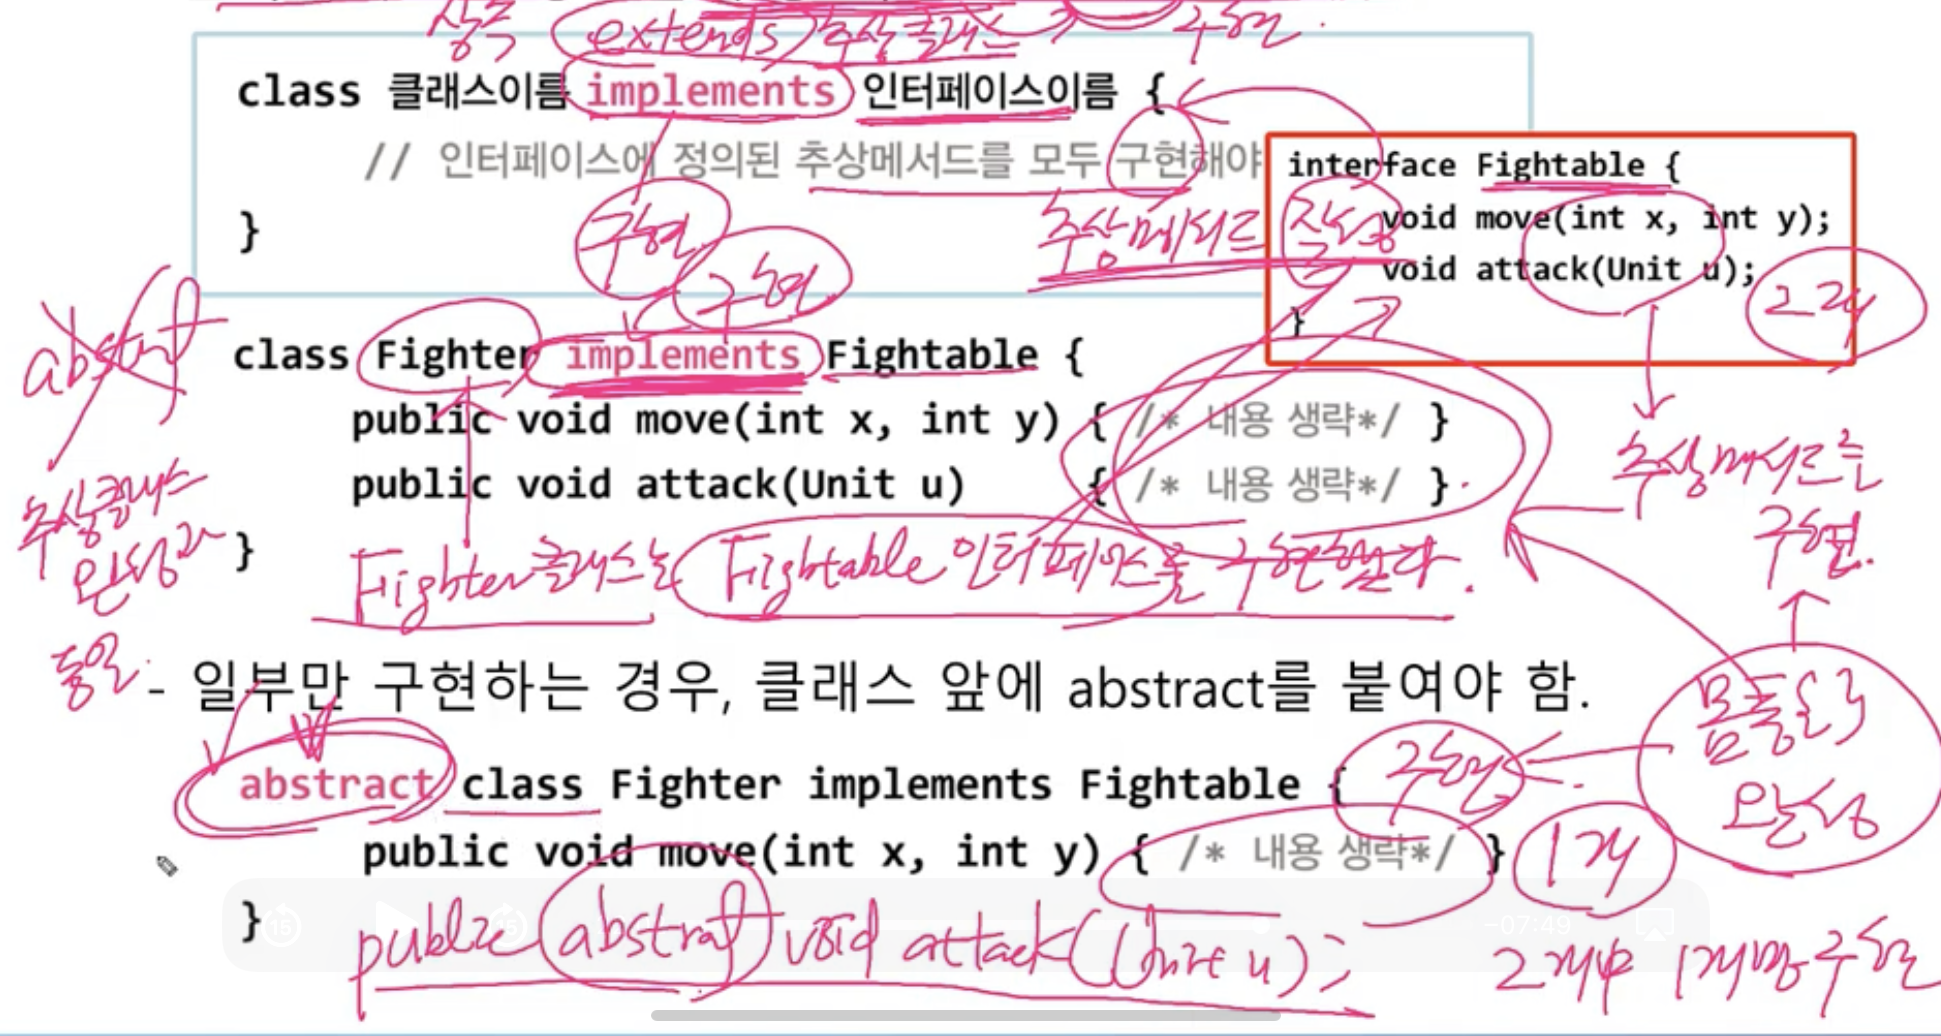 상속 extends 추상클래스 구현.
class 클래스이름 implements 인터페이스이름 {
// 인터페이스에 정의된 추상메서드를 모두 구현해야
}
구현
구현
추상메서드 작성
interface Fightable {
void move(int x, int y);
void attack(Unit u);
}
2개
abstract
추상클래스
완성과
동일.
class Fighter implements Fightable {
public void move(int x, int y) { /* 내용 생략*/ }
public void attack(Unit u) { /* 내용 생략*/ }
}
추상메서드를
구현.
Fighter클래스는 Fightable 인터페이스를 구현했다.
몸통{}
완성
- 일부만 구현하는 경우, 클래스 앞에 abstract를 붙여야 함.
abstract class Fighter implements Fightable {
구현
public void move(int x, int y) { /* 내용 생략*/ }
1개
}
public abstract void attack(Unit u);
2개中 1개만 구현
15
15
-07:49